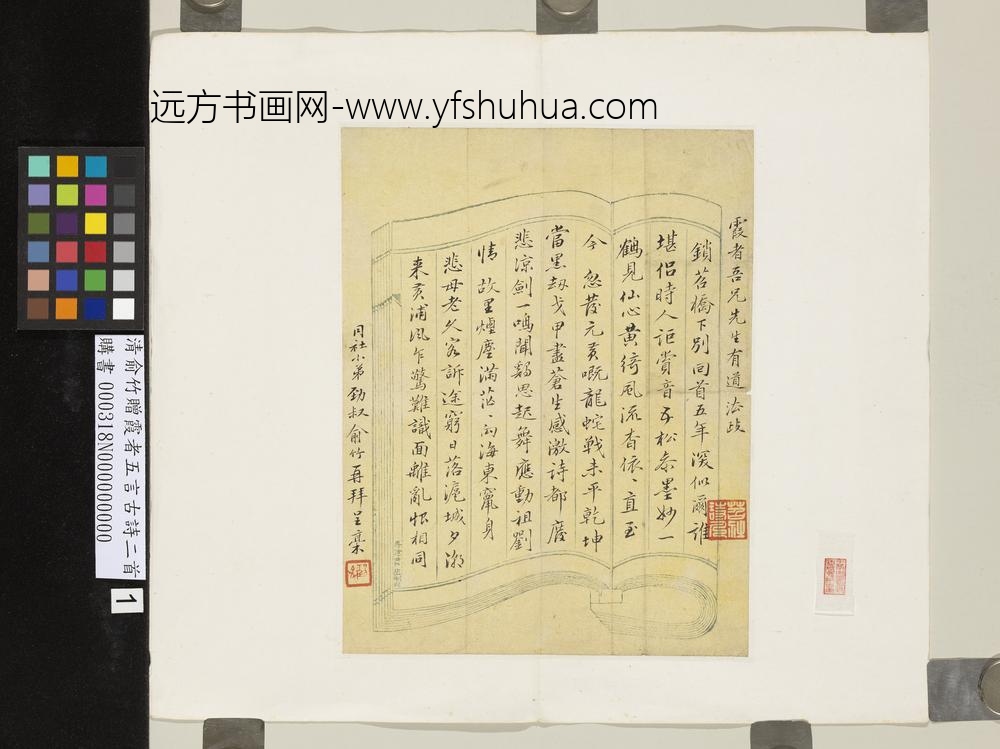 远方书画网-www.yfshuhua.com
霞者吾兄先生有道法政
鎖苔橋下別回首五年深似爾誰
堪侣時人詎賞音五松泰墨妙一
鶴見仙心黄綺風流杳依、直至
今 忽發元黄嘅龍蛇戰未平乾坤
當黑劫戈甲盡蒼生感激詩都廢
悲涼劍一鳴聞鷄思起舞應動祖劉
情 故里煙塵滿茫、向海東竄身
悲母老久客訴途窮日落滬城夕潮
来黄浦風乍驚難識面離亂恨相同
同社小弟勁叔俞竹再拜呈稾
清俞竹贈霞者五言古詩二首
購書 000318N000000000
1